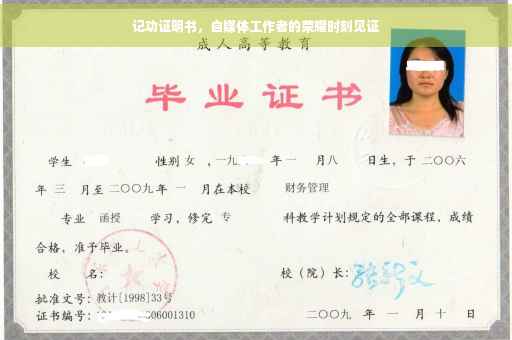 记功证明书，自媒体工作者的荣耀时刻见证
成人高等教育
毕业证书
学生 性别 女 ，一九 年 一 月八 日生，于 二〇〇六
年 三 月至 二〇〇九 年 一 月在本校 财务管理
专业 函授 学习，修完 专 科教学计划规定的全部课程，成绩
合格，准予毕业。
校 名： 校（院）长：
批准文号：教计[1998]33号
证书编号： 606001310 二〇〇九 年 一 月 十 日